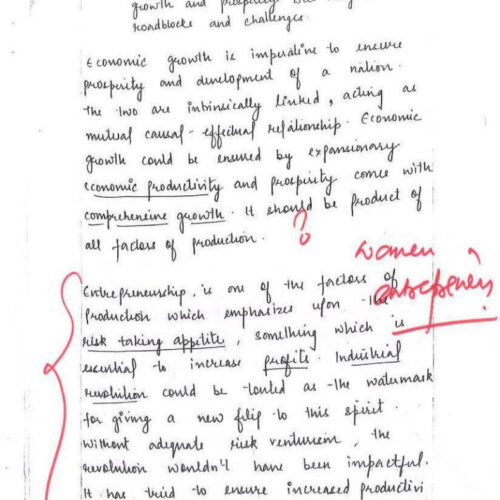 growth and prosperity
roadblocks and challenges.
Economic growth is imperative to ensure
prosperity and development of a nation.
The two are intrinsically linked, acting as
mutual causal-effectual relationship. Economic
growth could be ensured by expansionary
economic productivity and prosperity comes with
comprehensive growth. It should be product of
all factors of production.
?
women
entrepreneurs
Entrepreneurship, is one of the factors of
Production which emphasizes upon the
risk taking appetite, something which is
essential to increase profits. Industrial
revolution could be touted as the watermark
for giving a new filip to this spirit.
Without adequate risk venturism, the
revolution wouldn't have been impactful.
It has tried to ensure increased productivi